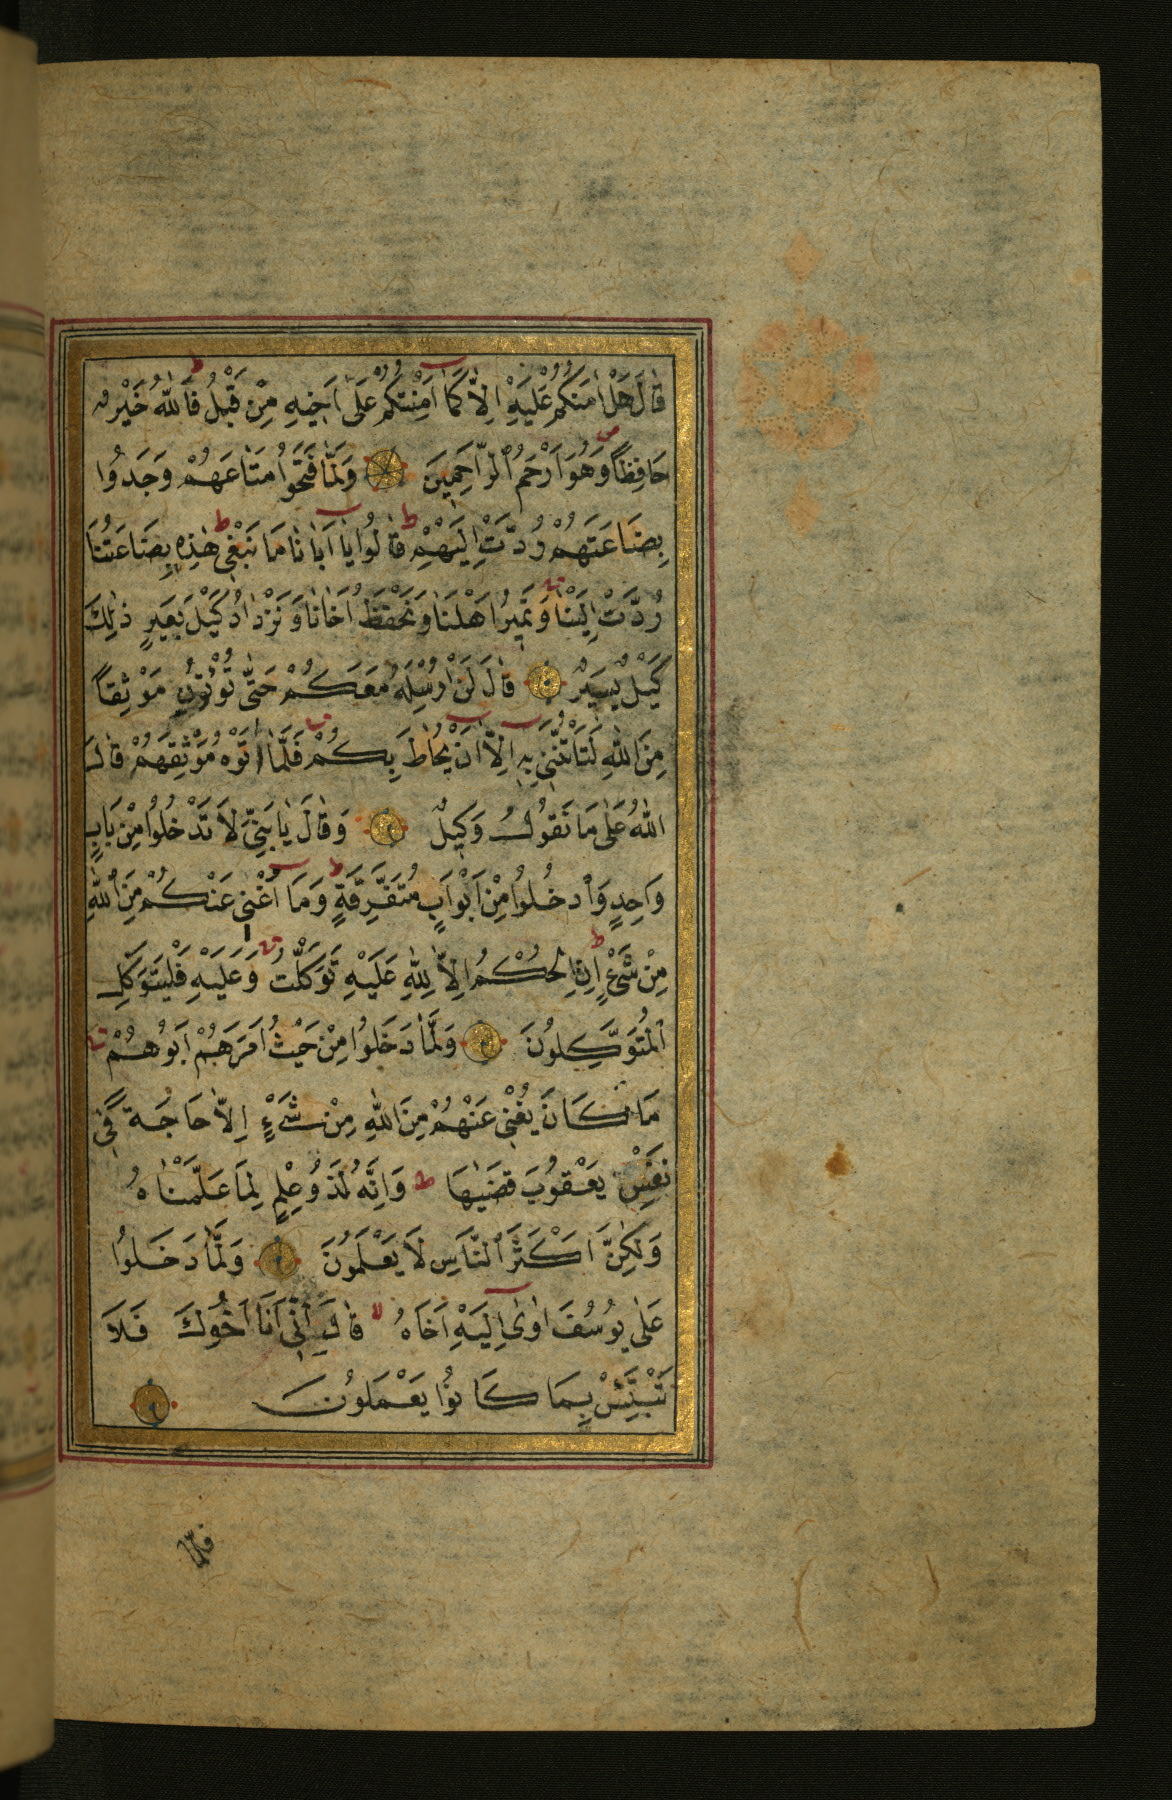 قَالَ هَلْ اٰمَنُكُمْ عَلَيْهِ اِلَّا كَمَا اَمِنْتُكُمْ عَلٰى اَخِيهِ مِنْ قَبْلُ فَاللّٰهُ خَيْرٌ
حَافِظًا وَهُوَ اَرْحَمُ الرَّاحِمِينَ وَلَمَّا فَتَحُوا مَتَاعَهُمْ وَجَدُوا
بِضَاعَتَهُمْ رُدَّتْ اِلَيْهِمْ قَالُوا يَا اَبَانَا مَا نَبْغِي هٰذِهِ بِضَاعَتُنَا
رُدَّتْ اِلَيْنَا وَنَمِيرُ اَهْلَنَا وَنَحْفَظُ اَخَانَا وَنَزْدَادُ كَيْلَ بَعِيرٍ ذٰلِكَ
كَيْلٌ يَسِيرٌ قَالَ لَنْ اُرْسِلَهُ مَعَكُمْ حَتّٰى تُؤْتُونِ مَوْثِقًا
مِنَ اللّٰهِ لَتَاْتُنَّنِي بِهِ اِلَّا اَنْ يُحَاطَ بِكُمْ فَلَمَّا اٰتَوْهُ مَوْثِقَهُمْ قَالَ
اللّٰهُ عَلٰى مَا نَقُولُ وَكِيلٌ وَقَالَ يَا بَنِيَّ لَا تَدْخُلُوا مِنْ بَابٍ
وَاحِدٍ وَادْخُلُوا مِنْ اَبْوَابٍ مُتَفَرِّقَةٍ وَمَا اُغْنِي عَنْكُمْ مِنَ اللّٰهِ
مِنْ شَيْءٍ اِنِ الْحُكْمُ اِلَّا لِلّٰهِ عَلَيْهِ تَوَكَّلْتُ وَعَلَيْهِ فَلْيَتَوَكَّلِ
الْمُتَوَكِّلُونَ وَلَمَّا دَخَلُوا مِنْ حَيْثُ اَمَرَهُمْ اَبُوهُمْ
مَا كَانَ يُغْنِي عَنْهُمْ مِنَ اللّٰهِ مِنْ شَيْءٍ اِلَّا حَاجَةً فِي
نَفْسِ يَعْقُوبَ قَضٰيهَا وَاِنَّهُ لَذُو عِلْمٍ لِمَا عَلَّمْنَاهُ
وَلٰكِنَّ اَكْثَرَ النَّاسِ لَا يَعْلَمُونَ وَلَمَّا دَخَلُوا
عَلٰى يُوسُفَ اٰوٰى اِلَيْهِ اَخَاهُ قَالَ اِنِّي اَنَا اَخُوكَ فَلَا
تَبْتَئِسْ بِمَا كَانُوا يَعْمَلُونَ
فلما